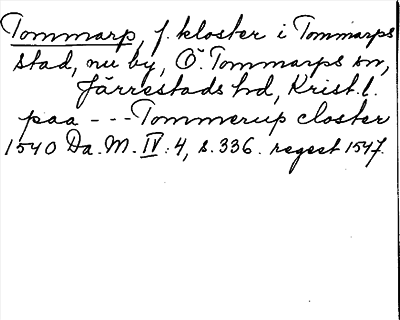 Tommarp, f. kloster i Tommarps
stad, nu by, Ö. Tommarps sn,
Järrestads hd, Krist. l.
paa --- Tommerup closter
1540 Da. M. IV: 4, s. 336. regest 1547.